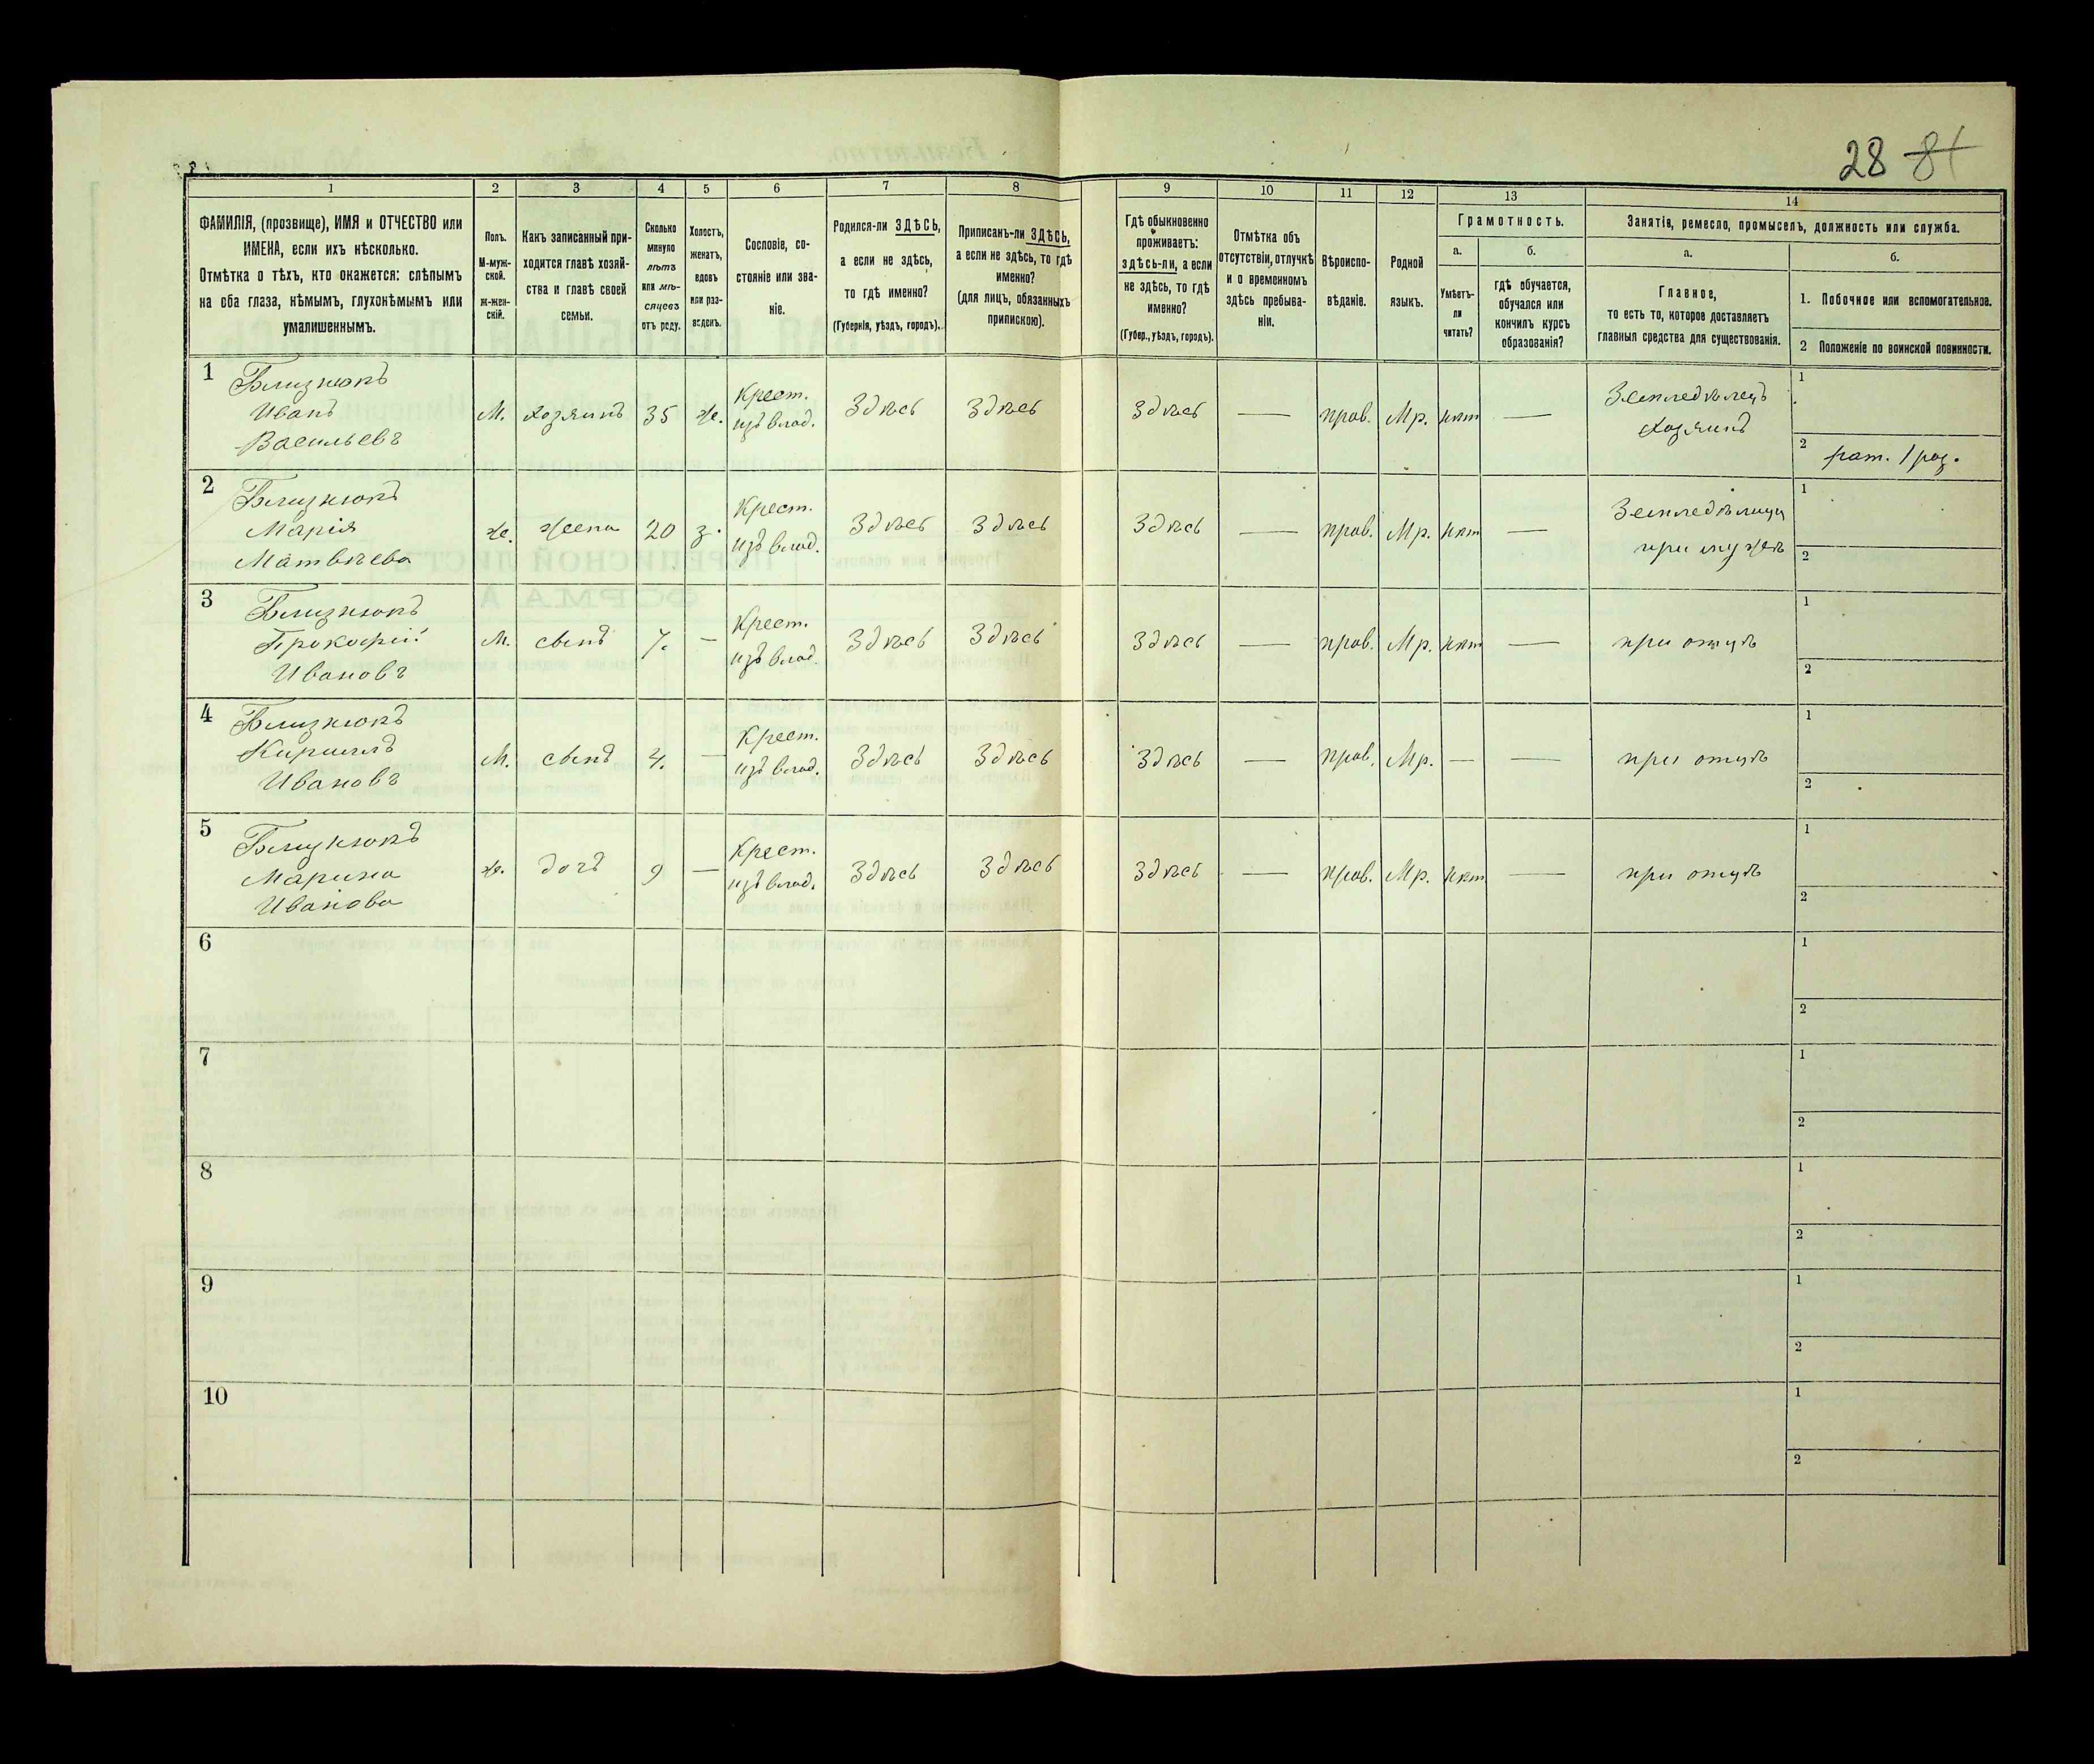 28 84
1 2 3 4 5 6 7 8 9 10 11 12 13 14
ФАМИЛІЯ, (прозвище), ИМЯ и ОТЧЕСТВО или
ИМЕНА, если ихъ нѣсколько.
Отмѣтка о тѣхъ, кто окажется: слѣпымъ
на оба глаза, нѣмымъ, глухонѣмымъ или
умалишеннымъ.
Полъ.
М-муж-
ской.
ж-жен-
скій.
Какъ записанный при-
ходится главѣ хозяй-
ства и главѣ своей
семьи.
Сколько
минуло
лѣтъ
или мѣ-
сяцевъ
отъ роду.
Холостъ,
женатъ,
вдовъ
или раз-
веденъ.
Сословіе, со-
стояніе или зва-
ніе.
Родился-ли ЗДѢСЬ,
а если не здѣсь,
то гдѣ именно?
(Губернія, уѣздъ, городъ).
Приписанъ-ли ЗДѢСЬ,
а если не здѣсь, то гдѣ
именно?
(для лицъ, обязанныхъ
припискою).
Гдѣ обыкновенно
проживаетъ:
здѣсь-ли, а если
не здѣсь, то гдѣ
именно?
(Губер., уѣздъ, городъ).
Отмѣтка объ
отсутствіи, отлучкѣ
и о временномъ
здѣсь пребыва-
ніи.
Вѣроиспо-
вѣданіе.
Родной
языкъ.
Грамотность.
а.
Умѣетъ-
ли
читать?
б.
гдѣ обучается,
обучался или
кончилъ курсъ
образованія?
Занятія, ремесло, промыселъ, должность или служба.
а.
Главное,
то есть то, которое доставляетъ
главныя средства для существованія.
б.
1. Побочное или вспомогательное.
2 Положеніе по воинской повинности.
1 Близнюкъ
Иванъ
Васильевъ
М. хозяинъ 35 ж. Крест. изъ влад. Здѣсь Здѣсь Здѣсь — прав. Мр. нѣт — Земледѣлецъ
хозяинъ
1
2 рат. 1 раз.
2 Близнюкъ
Марія
Матвѣева
ж. жена 20 з. Крест. изъ влад. Здѣсь Здѣсь Здѣсь — прав. Мр. нѣт — Земледѣлица
при мужѣ
1
2
3 Близнюкъ
Прокофій
Ивановъ
М. сынъ 7. — Крест. изъ влад. Здѣсь Здѣсь Здѣсь — прав. Мр. нѣт — при отцѣ
1
2
4 Близнюкъ
Кириллъ
Ивановъ
М. сынъ 4. — Крест. изъ влад. Здѣсь Здѣсь Здѣсь — прав. Мр. — — при отцѣ
1
2
5 Близнюкъ
Марина
Иванова
ж. дочь 9 — Крест. изъ влад. Здѣсь Здѣсь Здѣсь — прав. Мр. нѣт — при отцѣ
1
2
6
1
2
7
1
2
8
1
2
9
1
2
10
1
2